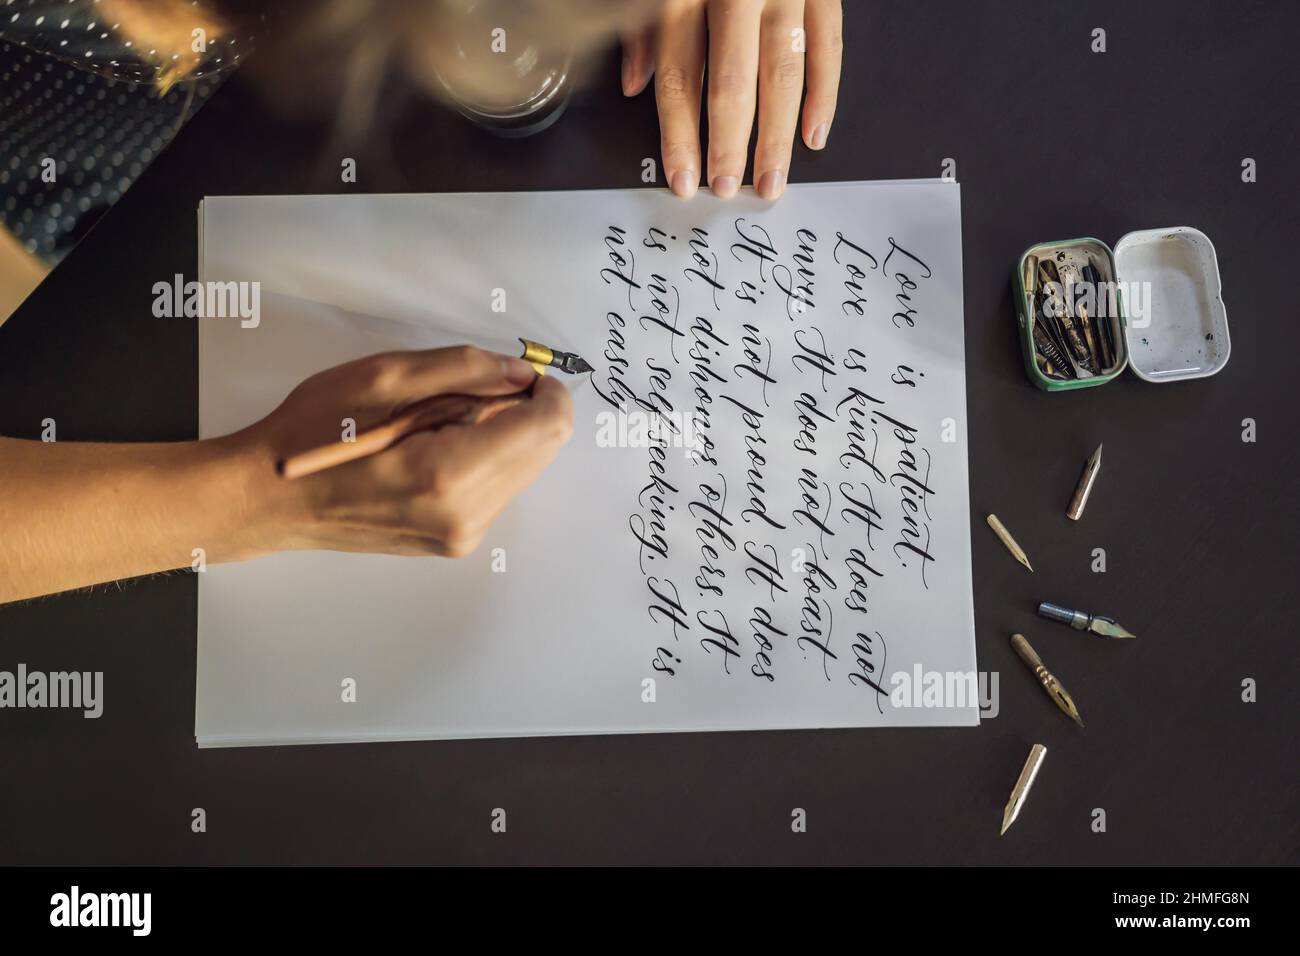 Love is patient.
Love is kind. It does not
envy. It does not boast.
It is not proud. It does
not dishonor others. It
is not self seeking. It is
not easily
alamy
alamy
alamy
alamy
alamy
Image ID: 2HMFG8N
www.alamy.com